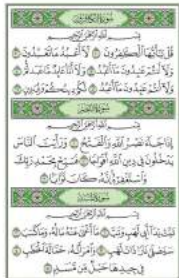 سورة الكافرون
بِسْمِ اللَّهِ الرَّحْمَٰنِ الرَّحِيمِ
قُلْ يَا أَيُّهَا الْكَافِرُونَ ۝ لَا أَعْبُدُ مَا تَعْبُدُونَ ۝
وَلَا أَنْتُمْ عَابِدُونَ مَا أَعْبُدُ ۝ وَلَا أَنَا عَابِدٌ مَا عَبَدْتُمْ ۝
وَلَا أَنْتُمْ عَابِدُونَ مَا أَعْبُدُ ۝ لَكُمْ دِينُكُمْ وَلِيَ دِينِ ۝
سورة النصر
بِسْمِ اللَّهِ الرَّحْمَٰنِ الرَّحِيمِ
إِذَا جَاءَ نَصْرُ اللَّهِ وَالْفَتْحُ ۝ وَرَأَيْتَ النَّاسَ
يَدْخُلُونَ فِي دِينِ اللَّهِ أَفْوَاجًا ۝ فَسَبِّحْ بِحَمْدِ رَبِّكَ
وَاسْتَغْفِرْهُ إِنَّهُ كَانَ تَوَّابًا ۝
سورة المسد
بِسْمِ اللَّهِ الرَّحْمَٰنِ الرَّحِيمِ
تَبَّتْ يَدَا أَبِي لَهَبٍ وَتَبَّ ۝ مَا أَغْنَىٰ عَنْهُ مَالُهُ وَمَا كَسَبَ ۝
سَيَصْلَىٰ نَارًا ذَاتَ لَهَبٍ ۝ وَامْرَأَتُهُ حَمَّالَةَ الْحَطَبِ ۝
فِي جِيدِهَا حَبْلٌ مِنْ مَسَدٍ ۝